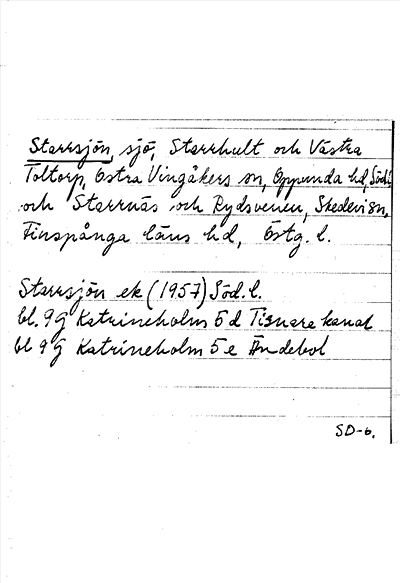 Starrsjön, sjö, Starrhult och Västra
Toltorp, Östra Vingåkers sn, Oppunda hd, Söd.l.
och Starrnäs och Rydsvenen, Skedevi sn,
Finspånga läns hd, Östg. l.
Starrsjön ek (1957) Söd. l.
bl. 9G Katrineholm 5d Tisnare kanal
bl 9G Katrineholm 5e Ändebol
SD-6.